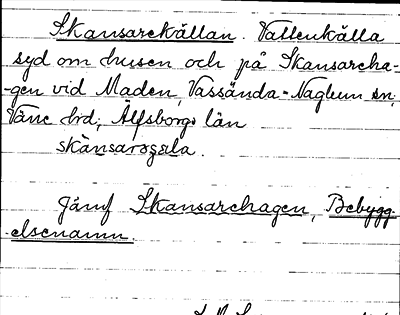 Skansarekällan. Vattenkälla
syd om husen och på Skansareha-
gen vid Maden, Vassända-Naglum sn,
Väne hd, Älfsborgs län
skànsarəɟæla.
Jämf Skansarehagen, Bebygg-
elsenamn.